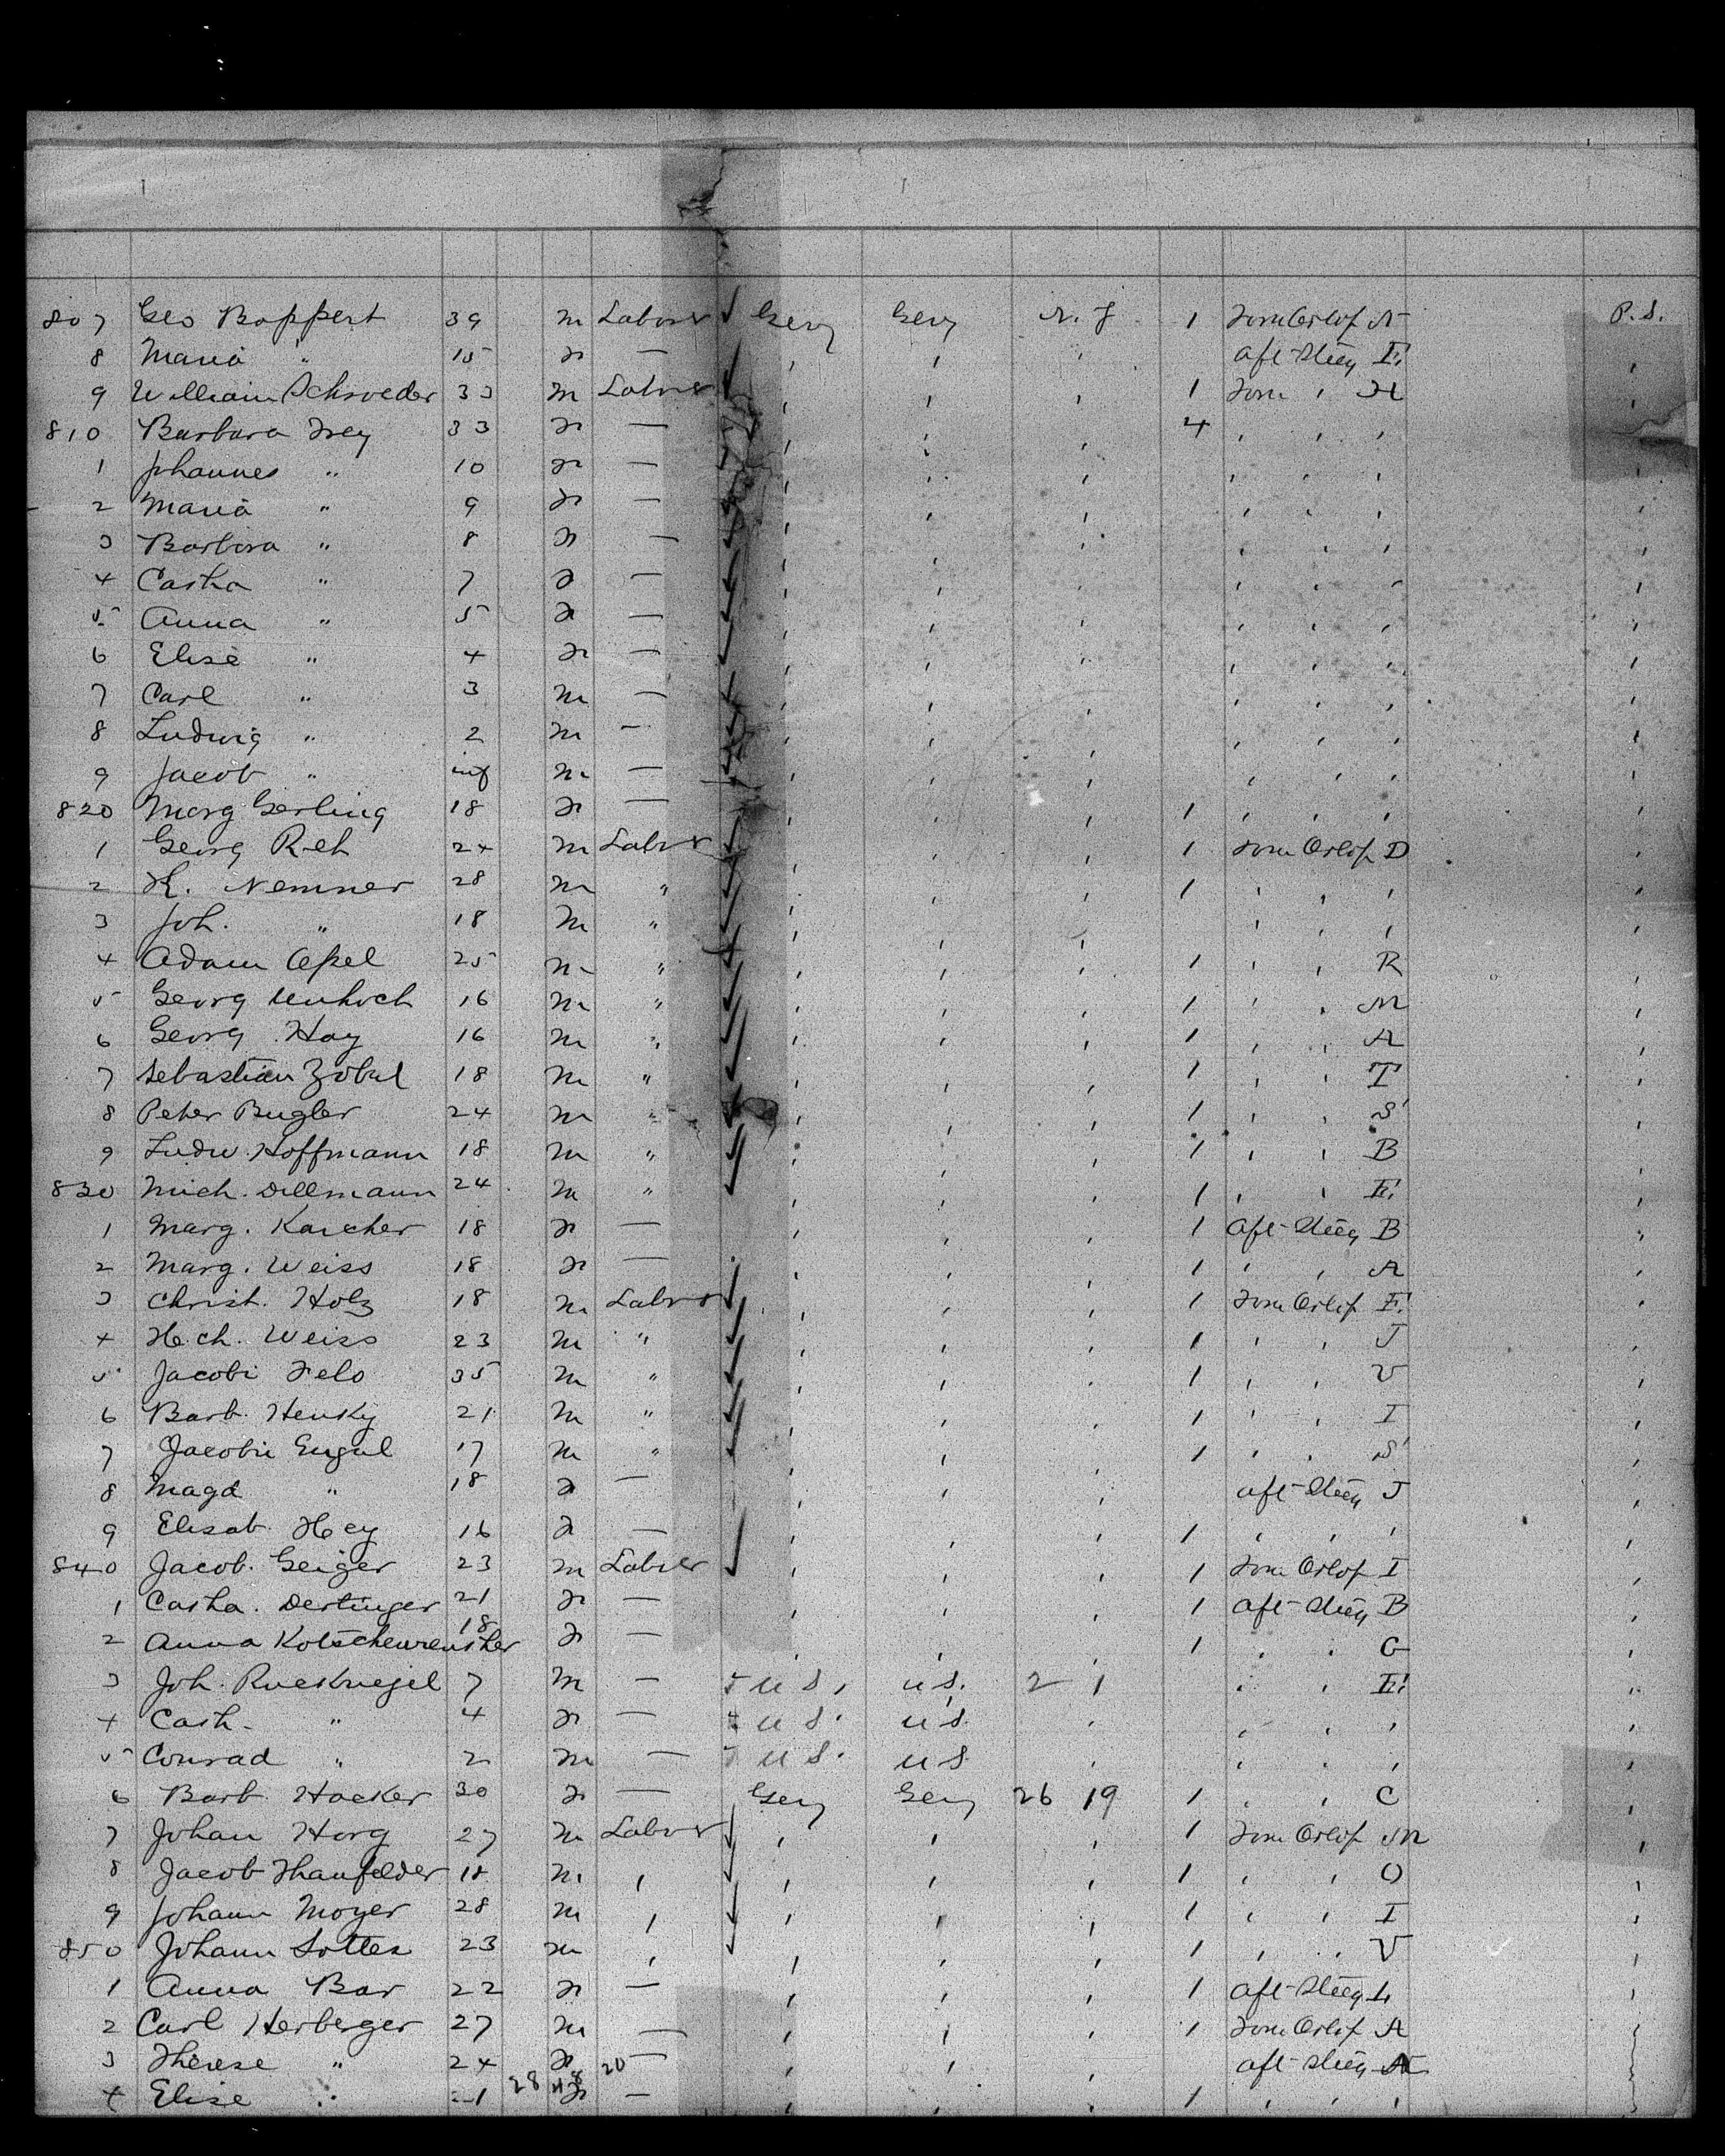 807 Geo Boppert 39 m Laborer Gery Gery N. J 1 Forw Orlop N P.S.
8 Maria " 15 f — , , , aft-Steeg E ,
9 William Schroeder 33 m Laborer , , , 1 Forw , H ,
810 Barbara Frey 33 f — , , , 4 , , , ,
1 Johannes " 10 f — , , , , , , ,
2 Maria " 9 f — , , , , , , ,
3 Barbara " 8 f — , , , , , , ,
4 Catha " 7 f — , , , , , , ,
5 Anna " 5 f — , , , , , , ,
6 Elise " 4 f — , , , , , , ,
7 Carl " 3 m — , , , , , , ,
8 Ludwig " 2 m — , , , , , , ,
9 Jacob " inf m — , , , , , , ,
820 Marg Gerling 18 f — , , , 1 , , , ,
1 Georg Reh 24 m Laborer , , , 1 Forw Orlop D ,
2 K. Nemner 28 m " , , , 1 , , , ,
3 Joh. " 18 m " , , , , , , ,
4 Adam Apel 25 m " , , , 1 , , R ,
5 Georg 16 m " , , , 1 , , M ,
6 Georg Hay 16 m " , , , 1 , , A ,
7 Sebastian Zobel 18 m " , , , 1 , , T ,
8 Peter Bugler 24 m " , , , 1 , , S ,
9 Ludw. Hoffmann 18 m " , , , 1 , , B ,
830 Mich. Dellmann 24 m " , , , 1 , , E ,
1 Marg. Karcher 18 f — , , , 1 aft-Steeg B "
2 Marg. Weiss 18 f — , , , 1 , , A ,
3 Christ. Holz 18 m Laborer , , , 1 Forw Orlop E ,
4 Hch. Weiss 23 m " , , , 1 , , J ,
5 Jacob Fels 35 m " , , , 1 , , V ,
6 Barb. Hensky 21 m " , , , 1 , , I ,
7 Jacob Engel 17 m " , , , 1 , , S ,
8 Magd " 18 f — , , , aft-Steeg J ,
9 Elisab. Hey 16 f — , , , 1 , , , ,
840 Jacob. Geiger 23 m Laborer , , , 1 Forw Orlop I ,
1 Catha. Dertinger 21 f — , , , 1 aft-Steeg B ,
2 Anna 18 f — , , , 1 , , G ,
3 Joh. 7 m — U S, U S. 2 1 , , E "
4 Cath. " 4 f — U S. U S. , , , , ,
5 Conrad " 2 m — U S. U S , , , , ,
6 Barb. Hacker 30 f — Gery Gery 26 19 1 , , C ,
7 Johan Horg 27 m Laborer , , , 1 Forw Orlop M ,
8 Jacob Thanfelder 18 m , , , , 1 , , O ,
9 Johann Moyer 28 m , , , , 1 , , I ,
850 Johann Sotter 23 m , , , , 1 , , V ,
1 Anna Bar 22 f — , , , 1 aft-Steeg L ,
2 Carl Herberger 27 m — , , , 1 Forw Orlop A ,
3 Therese " 24 f 20 — , , , aft-Steeg N
4 Elise " 1 28 48 f — , , , 1 , , ,